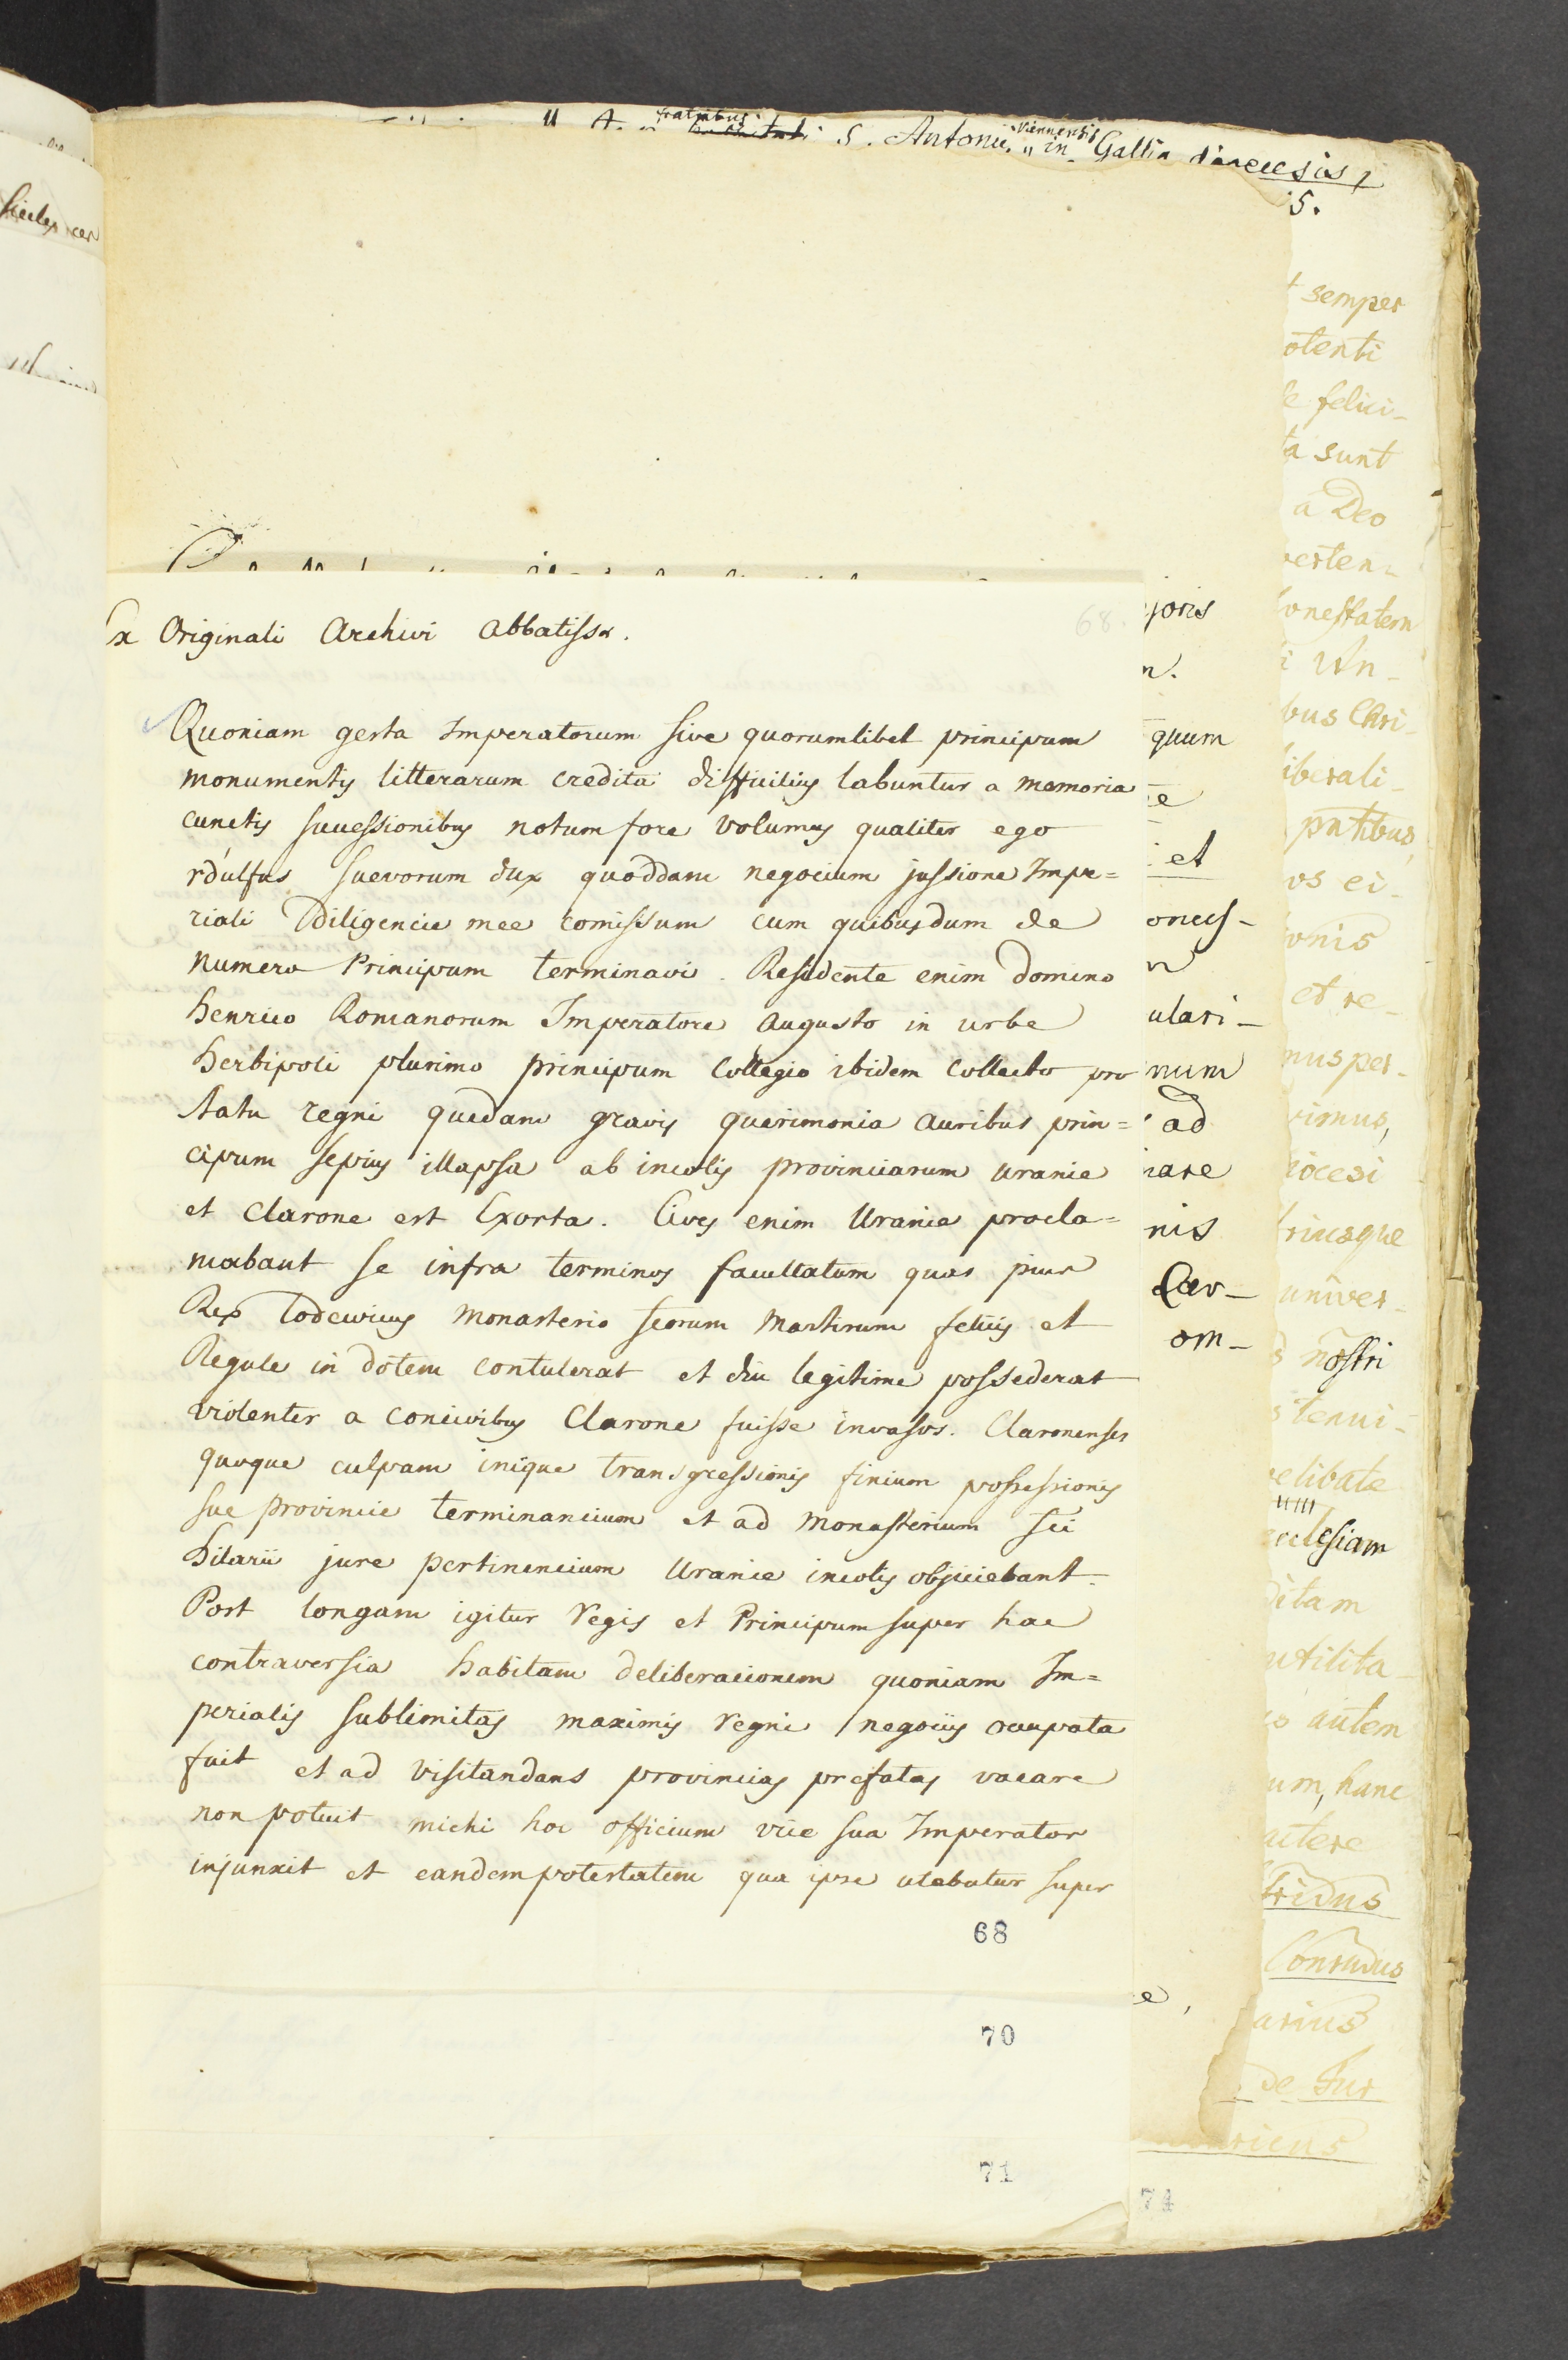 fratribus Viennensis
S. Antonii in Gallia diœcesis
5.
Ex Originali Archivi Abbatissæ.
68.
Quoniam gesta Imperatorum sive quorumlibet principum
monumentis litterarum credita difficilius labuntur a memoria
cunctis successionibus notum fore volumus qualiter ego
rdulfus Suevorum dux quoddam negocium jussione Impe=
riali Diligencie mee comissum cum quibusdum de
numero Principum terminavi. Residente enim domino
henrico Romanorum Imperatore Augusto in urbe
herbipoli plurimo principum Collegio ibidem Collecto pro
statu regni quedam gravis querimonia auribus prin=
cipum sepius illapsa ab incolis provinciarum uranie
et Clarone est Exorta. Cives enim Uranie procla=
mabant se infra terminos facultatum quas pius
Rex Lodewicus Monasterio scorum Martirum felicis et
Regule in dotem contulerat et diu legitime possederat
violenter a concivibus Clarone fuisse invasos. Claronenses
quoque culpam inique transgressionis finium possessionis
sue provincie terminancium et ad Monasterium sci
hilarii jure pertinencium Uranie incolis objiciebant.
Post longam igitur regis et Principum super hac
contraversia habitam deliberacionem quoniam Im=
perialis sublimitas maximis regni negociis occupata
fuit et ad visitandans provincias prefatas vacare
non potuit michi hoc officium vice sua Imperator
injunxit et eandem potestatem qua ipse utebatur super
68
70
71
joris
n.
quum
e
et
onces-
ulari-
num
ad
nis
om-
e,
74
semper
otenti
e felici-
ta sunt
a Deo
verten-
honestatem
i Un-
bus Chri-
liberali-
pntibus,
os ei-
ionis
et re-
nus per-
rimus,
iocesi
triusque
univer-
s nostri
stenui-
velibate
ecclesiam
ditam
utilita-
autem
um, hanc
actere
fridus
Conradus
arius
de Tur
ricus